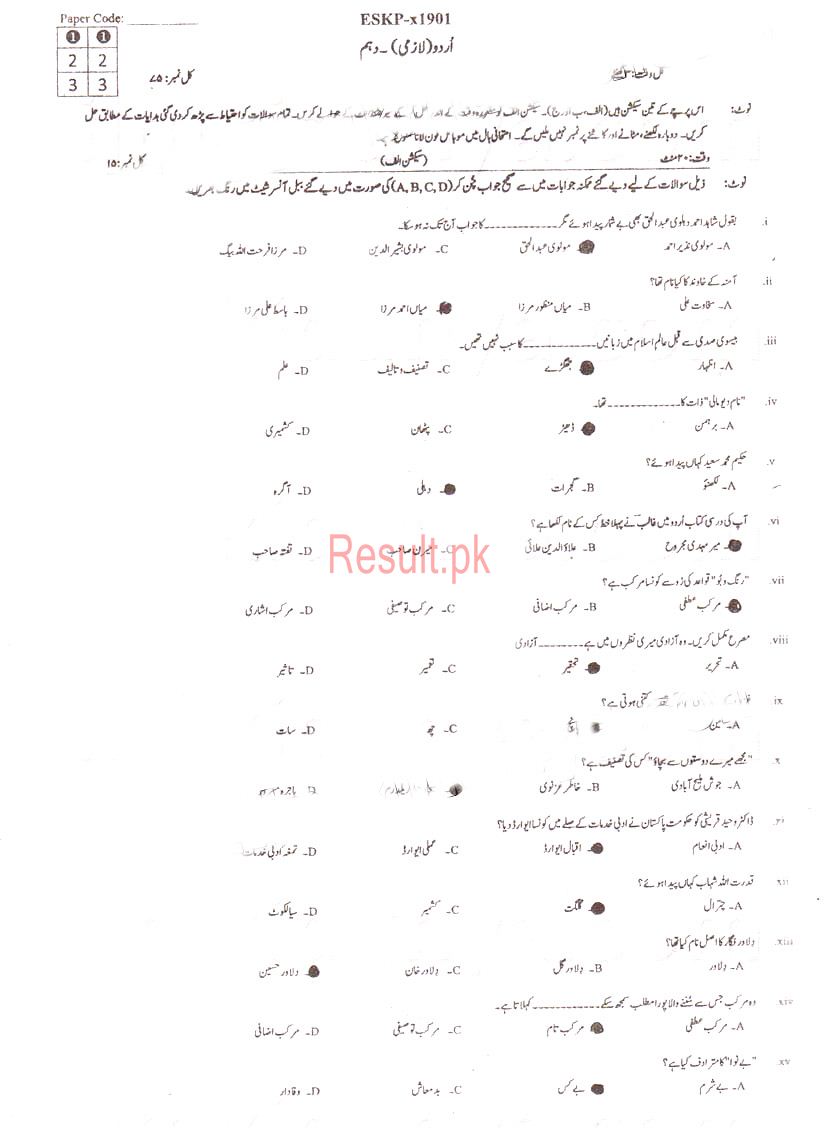 Paper Code: ESKP-x1901
1 1
2 2
3 3
اُردو (لازمی) ۔ دہم
کل نمبر: ۷۵
نوٹ: اس پرچے کے تین سیکشن ہیں (الف، ب اور ج)۔ سیکشن الف کے کریں۔ تمام سوالات کو احتیاط سے پڑھ کر دی گئی ہدایات کے مطابق حل
کریں۔ دوبارہ لکھنے، مٹانے اور کاٹنے پر نمبر نہیں ملیں گے۔ امتحانی ہال میں موبائل فون لانا
وقت: ۲۰ منٹ (سیکشن الف) کل نمبر: ۱۵
نوٹ: ذیل سوالات کے لیے دیے گئے ممکنہ جوابات میں سے صحیح جواب چُن کر (A, B, C, D) کی صورت میں دیے گئے ببل آنسر شیٹ میں رنگ بھریں۔
i. بقول شاہد احمد دہلوی عبدالحق بھی بے شمار پیدا ہوئے مگر ____________ کا جواب آج تک نہ ہو سکا۔
A۔ مولوی نذیر احمد مولوی عبدالحق C۔ مولوی بشیر الدین D۔ مرزا فرحت اللہ بیگ
ii. آمنہ کے خاوند کا کیا نام تھا؟
A۔ سخاوت علی B۔ میاں منظور مرزا میاں احمد مرزا D۔ باسط علی مرزا
iii. بیسوی صدی سے قبل عالم اسلام میں زبانیں ____________ کا سبب نہیں تھیں۔
A۔ اظہار جھگڑے C۔ تصنیف و تالیف D۔ علم
iv. "نام دیو مالی" ذات کا ____________ تھا۔
A۔ برہمن ڈھیڑ C۔ پٹھان D۔ کشمیری
v. حکیم محمد سعید کہاں پیدا ہوئے؟
A۔ لکھنؤ B۔ گجرات دہلی D۔ آگرہ
vi. آپ کی درسی کتاب اُردو میں غالب نے پہلا خط کس کے نام لکھا ہے؟
میر مہدی مجروح B۔ علاؤ الدین علائی C۔ میرن صاحب D۔ تفتہ صاحب
Result.pk
vii. "رنگ و بُو" قواعد کی رُو سے کونسا مرکب ہے؟
مرکب عطفی B۔ مرکب اضافی C۔ مرکب توصیفی D۔ مرکب اشاری
viii. مصرع مکمل کریں۔ وہ آزادی میری نظروں میں ہے ________ آزادی
A۔ تحریر تحقیر C۔ تعمیر D۔ تاثیر
ix کتنی ہوتی ہے؟
A۔ پانچ C۔ چھ D۔ سات
x. "مجھے میرے دوستوں سے بچاؤ" کس کی تصنیف ہے؟
A۔ جوش ملیح آبادی B۔ خاطر غزنوی
xi. ڈاکٹر وحید قریشی کو حکومت پاکستان نے ادبی خدمات کے صلے میں کونسا ایوارڈ دیا؟
A۔ ادبی انعام اقبال ایوارڈ C۔ علمی ایوارڈ D۔ تمغہ ادبی خدمات
xii قدرت اللہ شہاب کہاں پیدا ہوئے؟
A۔ چترال گلگت C۔ کشمیر D۔ سیالکوٹ
xiii. دِلاور فگار کا اصل نام کیا تھا؟
A۔ دِلاور B۔ دِلاور گل C۔ دِلاور خان دلاور حسین
xiv. وہ مرکب جس سے سُننے والا پورا مطلب سمجھ سکے ____________ کہلاتا ہے۔
A۔ مرکب عطفی مرکب تام C۔ مرکب توصیفی D۔ مرکب اضافی
xv. "بے نوا" کا مترادف کیا ہے؟
A۔ بے شرم بے کس C۔ بدمعاش D۔ وفادار